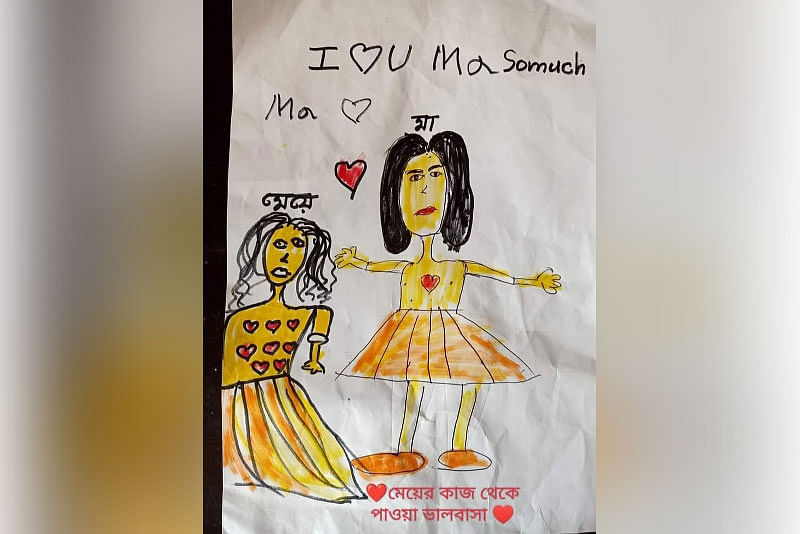 I ♡ U Ma Somuch
Ma ♡
মা
মেয়ে
❤মেয়ের কাজ থেকে
পাওয়া ভালবাসা ❤